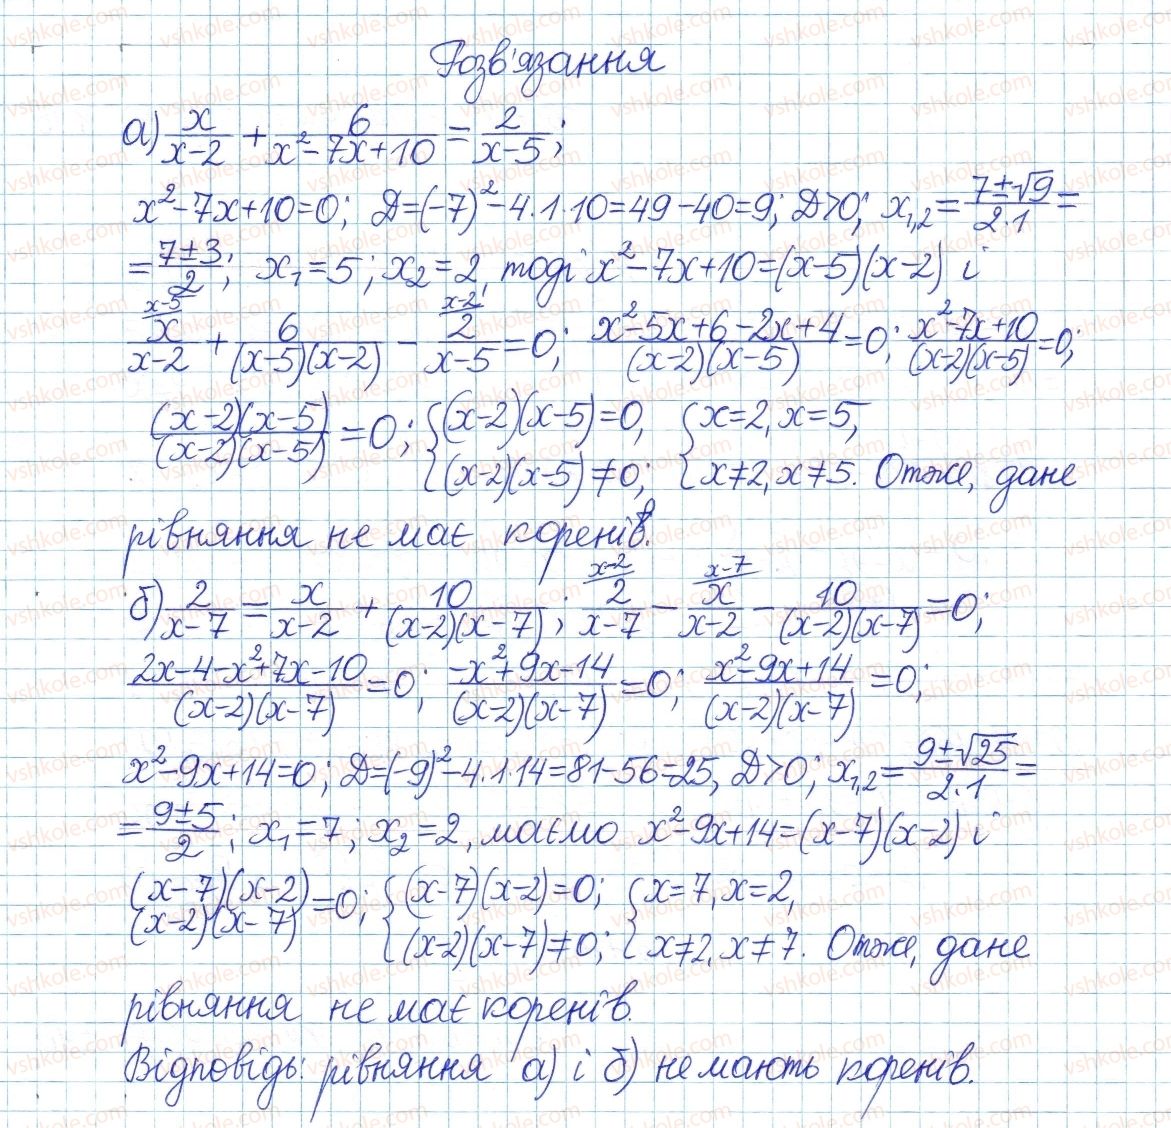 Розв'язання
а) x/(x-2) + 6/(x²-7x+10) = 2/(x-5);
x²-7x+10=0; D=(-7)²-4·1·10=49-40=9; D>0; x₁,₂ = (7±√9)/(2·1) =
= (7±3)/2; x₁=5; x₂=2, тоді x²-7x+10=(x-5)(x-2) і
x-5/ x/(x-2) + 6/((x-5)(x-2)) - x-2/ 2/(x-5) = 0; (x²-5x+6-2x+4)/((x-2)(x-5)) = 0; (x²-7x+10)/((x-2)(x-5)) = 0;
((x-2)(x-5))/((x-2)(x-5)) = 0; { (x-2)(x-5)=0, { x=2, x=5,
(x-2)(x-5)≠0; x≠2, x≠5. Отже, дане
рівняння не має коренів.
б) 2/(x-7) = x/(x-2) + 10/((x-2)(x-7)); x-2/ 2/(x-7) - x-7/ x/(x-2) - 10/((x-2)(x-7)) = 0;
(2x-4-x²+7x-10)/((x-2)(x-7)) = 0; (-x²+9x-14)/((x-2)(x-7)) = 0; (x²-9x+14)/((x-2)(x-7)) = 0;
x²-9x+14=0; D=(-9)²-4·1·14=81-56=25, D>0; x₁,₂ = (9±√25)/(2·1) =
= (9±5)/2; x₁=7; x₂=2, маємо x²-9x+14=(x-7)(x-2) і
((x-7)(x-2))/((x-2)(x-7)) = 0; { (x-7)(x-2)=0; { x=7, x=2,
(x-2)(x-7)≠0; x≠2, x≠7. Отже, дане
рівняння не має коренів.
Відповідь: рівняння а) і б) не мають коренів.